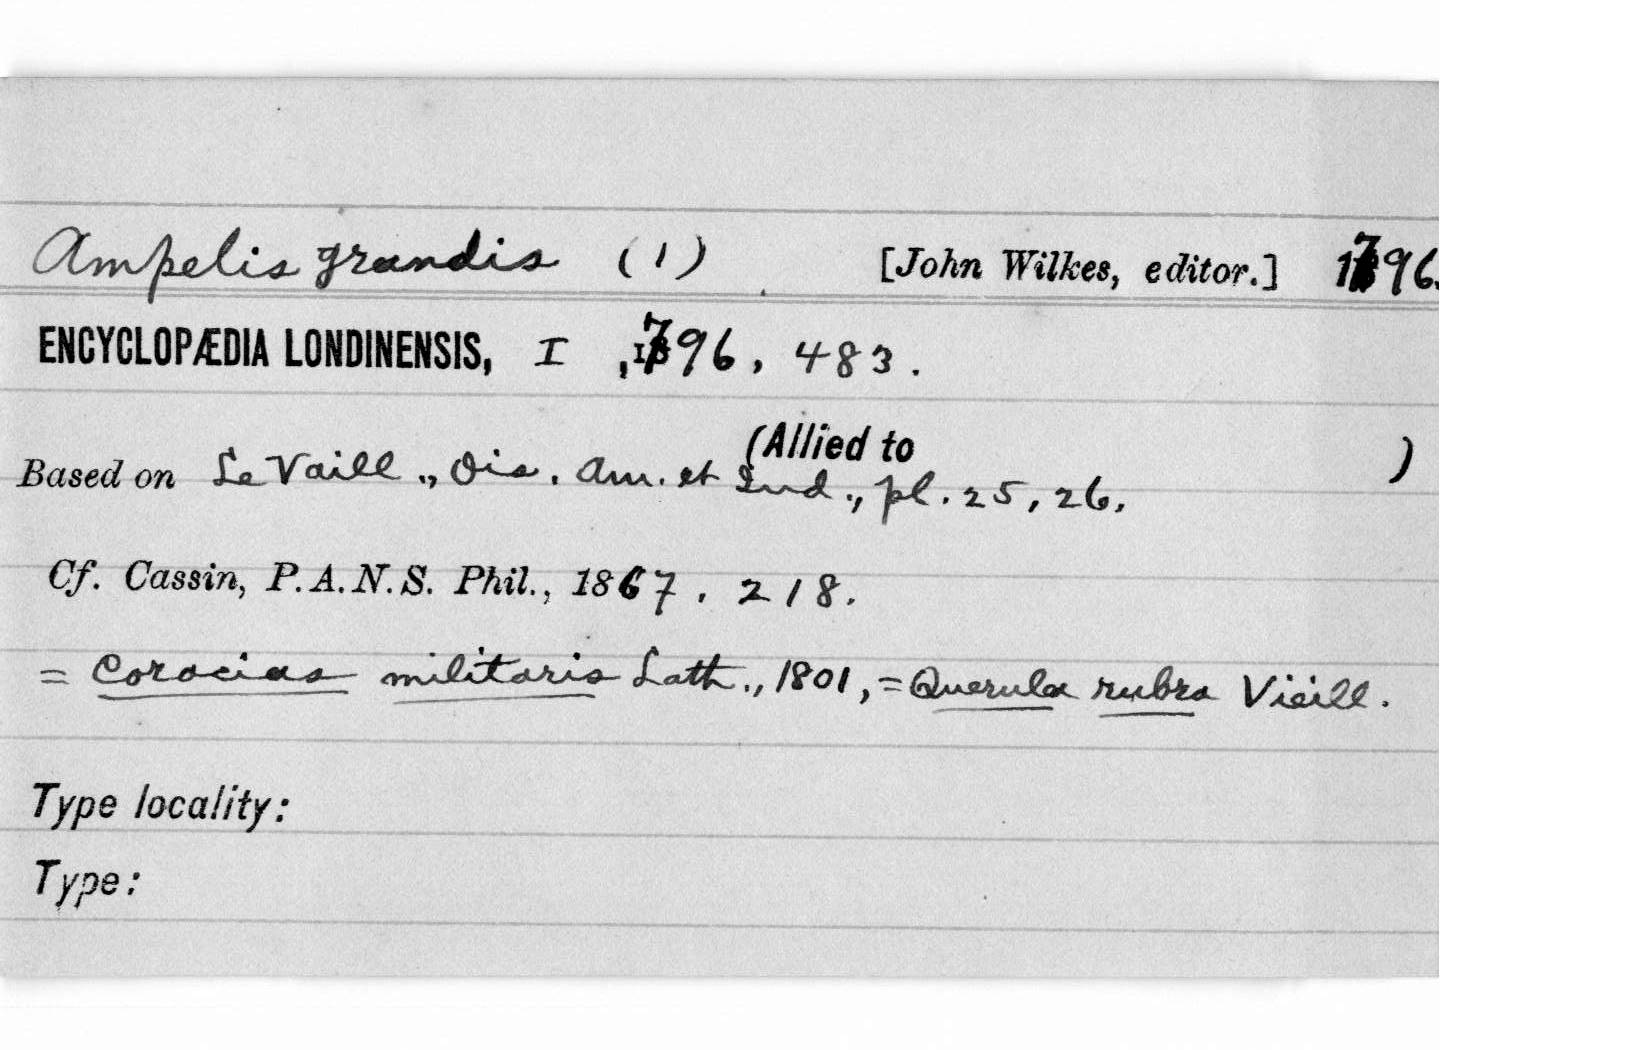 Ampelis grandis (1) [John Wilkes, editor.] 1796.
ENCYCLOPÆDIA LONDINENSIS, I , 1796, 483.
(Allied to )
Based on Le Vaill., Ois. Am. et Ind., pl. 25, 26.
Cf. Cassin, P.A.N.S. Phil., 1867. 218.
= Coracias militaris Lath., 1801, = Querula rubra Vieill.
Type locality:
Type: